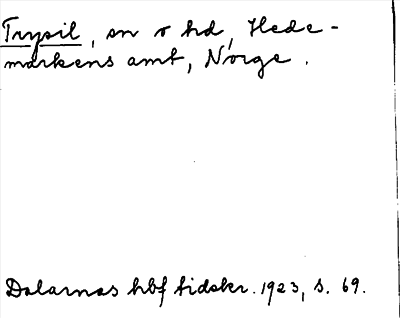 Trysil, sn o hd, Hede-
markens amt, Norge.
Dalarnas hbf tidskr. 1923, s. 69.